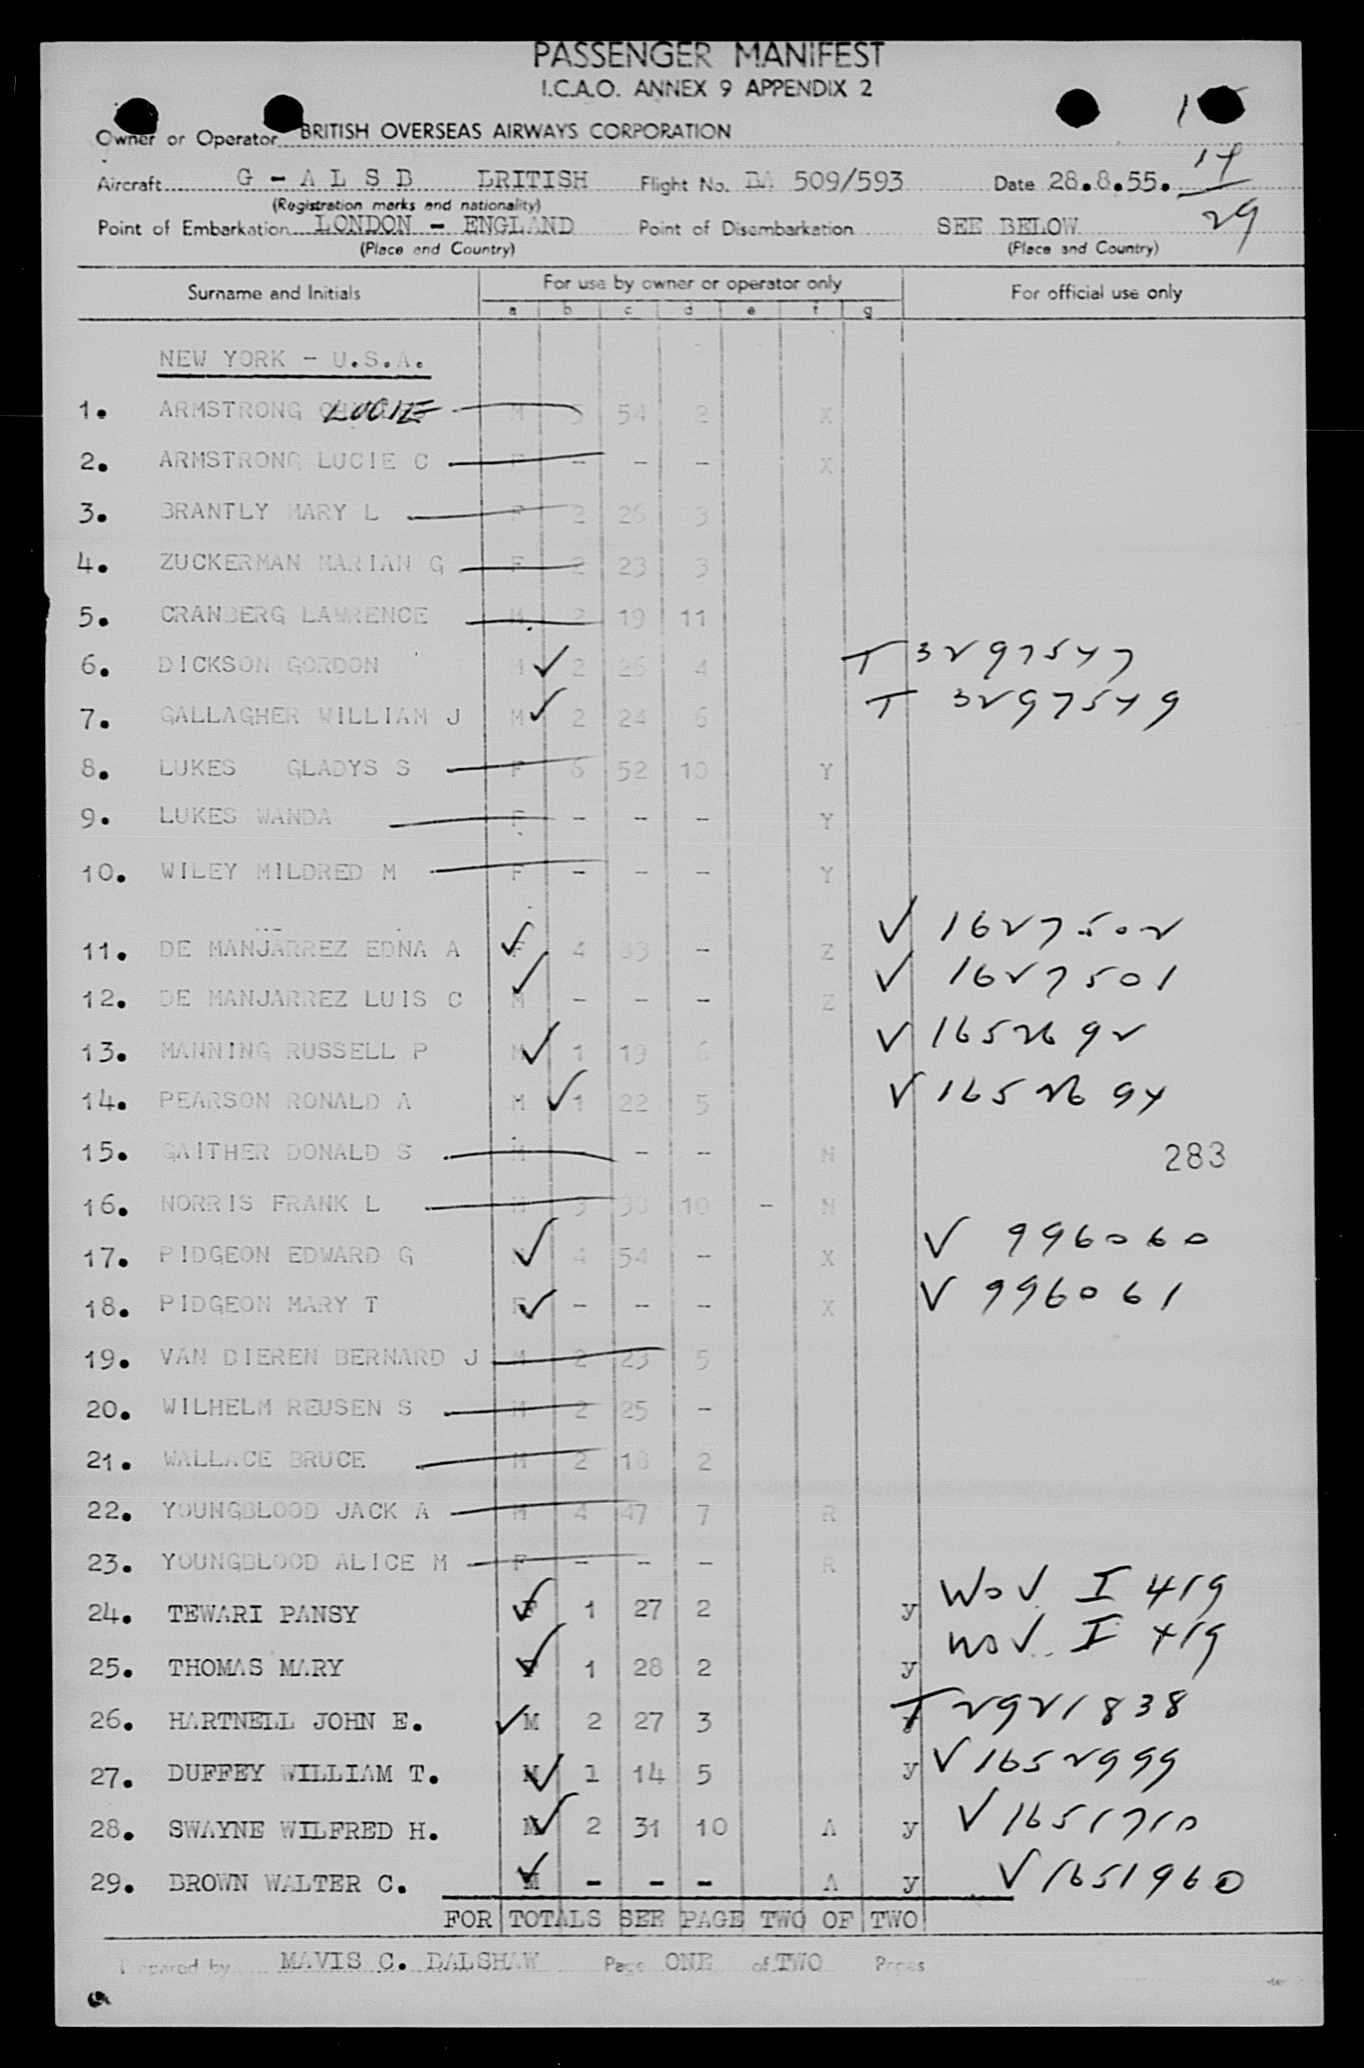 PASSENGER MANIFEST
I.C.A.O. ANNEX 9 APPENDIX 2
Owner or Operator BRITISH OVERSEAS AIRWAYS CORPORATION
Aircraft G - A L S B BRITISH Flight No. BA 509/593 Date 28.8.55. 14
(Registration marks and nationality)
29
Point of Embarkation LONDON - ENGLAND Point of Disembarkation SEE BELOW
(Place and Country) (Place and Country)
Surname and Initials For use by owner or operator only For official use only
a b c d e f g
NEW YORK - U.S.A.
1. ARMSTRONG LUCIE M 5 54 2 X
2. ARMSTRONG LUCIE C F - - - X
3. BRANTLY MARY L F 2 26 3
4. ZUCKERMAN MARIAN G F 2 23 3
5. CRANBERG LAWRENCE M 2 19 11
6. DICKSON GORDON M ✓ 2 26 4 T 3297547
7. GALLAGHER WILLIAM J M ✓ 2 24 6 T 3297549
8. LUKES GLADYS S F 6 52 10 Y
9. LUKES WANDA F - - - Y
10. WILEY MILDRED M F - - - Y
11. DE MANJARREZ EDNA A F ✓ 4 83 - Z V 1627502
12. DE MANJARREZ LUIS C M ✓ - - - Z V 1627501
13. MANNING RUSSELL P M ✓ 1 19 6 V 1652692
14. PEARSON RONALD A M ✓ 1 22 5 V 1652694
15. GAITHER DONALD S M - - - N 283
16. NORRIS FRANK L M 3 38 10 - N
17. PIDGEON EDWARD G ✓ 4 54 - X V 996060
18. PIDGEON MARY T F ✓ - - - X V 996061
19. VAN DIEREN BERNARD J M 2 23 5
20. WILHELM REUSEN S M 2 25 -
21. WALLACE BRUCE M 2 18 2
22. YOUNGBLOOD JACK A M 4 47 7 R
23. YOUNGBLOOD ALICE M F - - - R
24. TEWARI PANSY F ✓ 1 27 2 y WoV I 419
25. THOMAS MARY F ✓ 1 28 2 y WoV I 419
26. HARTNELL JOHN E. ✓ M 2 27 3 T 2921838
27. DUFFEY WILLIAM T. M ✓ 1 14 5 y V 1652999
28. SWAYNE WILFRED H. M ✓ 2 31 10 A y V 1651710
29. BROWN WALTER C. M ✓ - - - A y V 1651960
FOR TOTALS SEE PAGE TWO OF TWO
Prepared by MAVIS C. DALSHAW Page ONE of TWO Pages